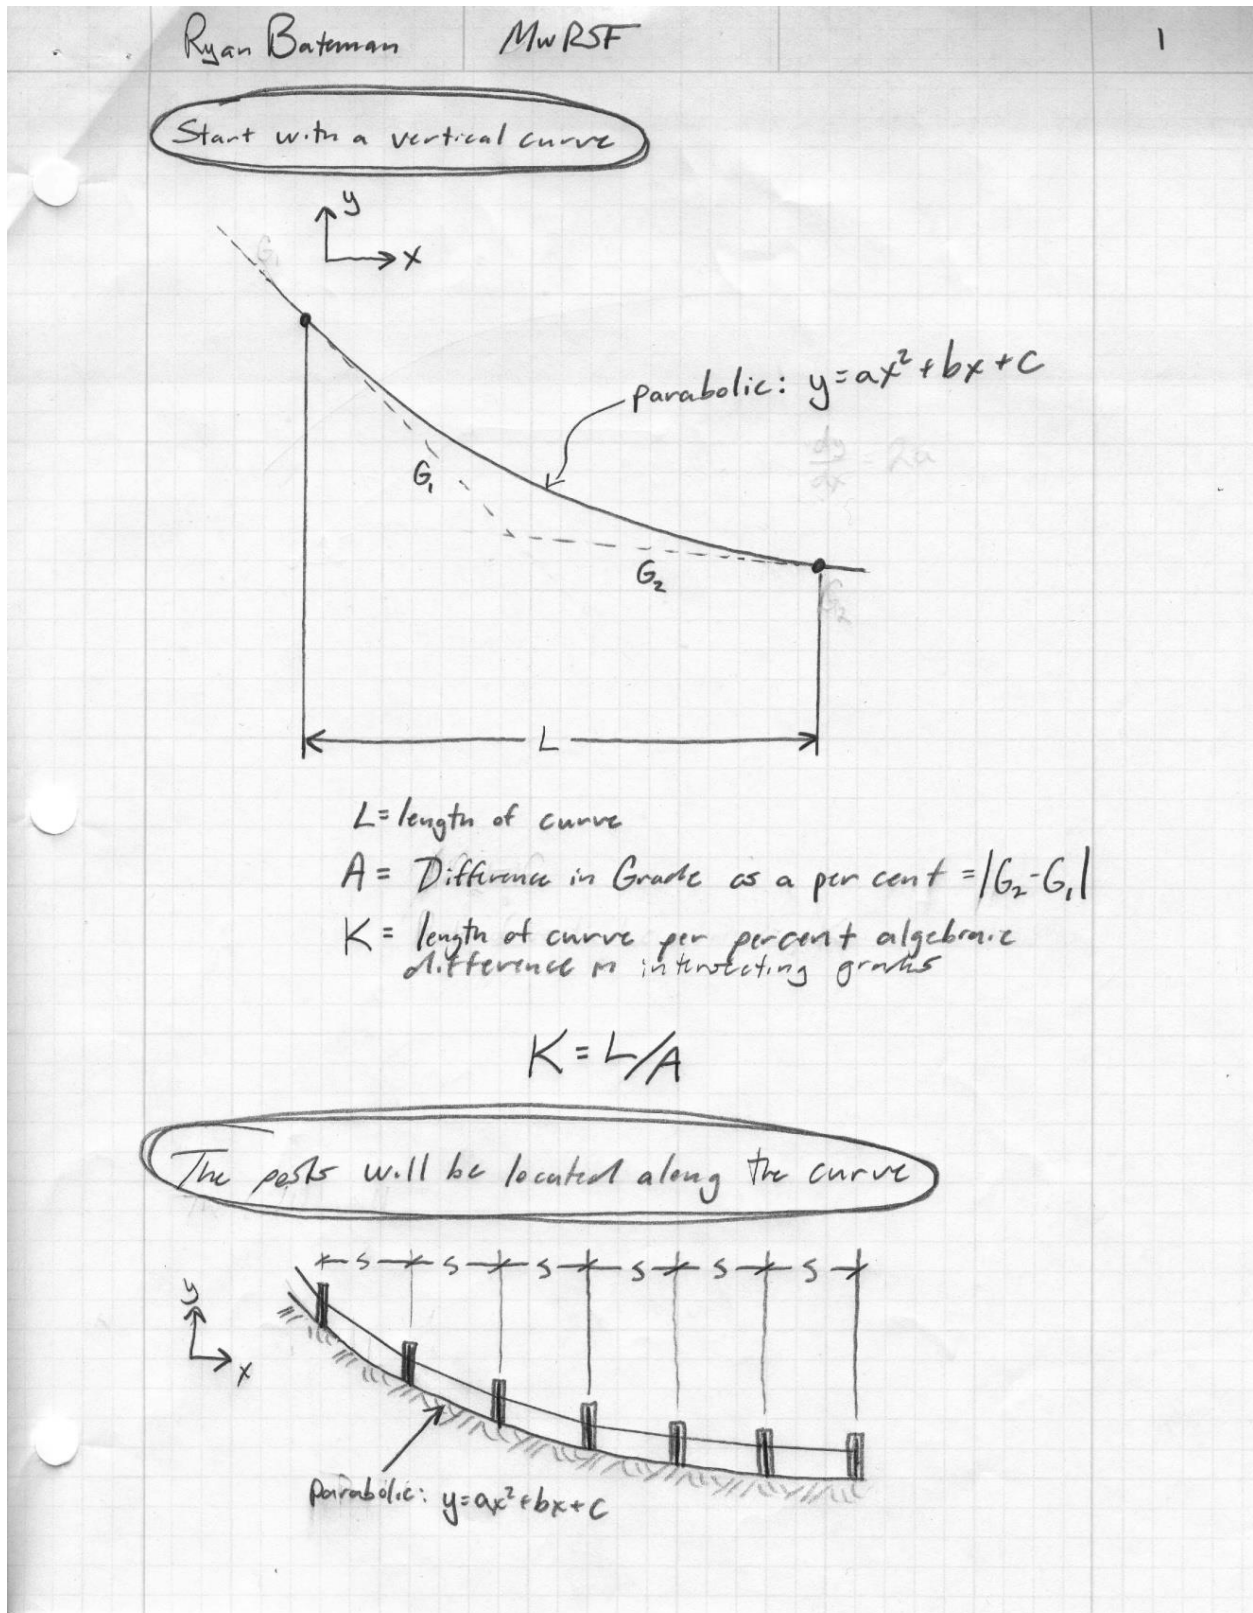 Ryan Bateman MwRSF 1
Start with a vertical curve
y
x
G₁
parabolic: y=ax²+bx+c
dy/dx = 2a
G₁
G₂
G₂
L
L = length of curve
A = Difference in Grade as a per cent = |G₂-G₁|
K = length of curve per percent algebraic
difference in intersecting grades
K = L/A
The posts will be located along the curve
S S S S S S
y
x
parabolic: y=ax²+bx+c